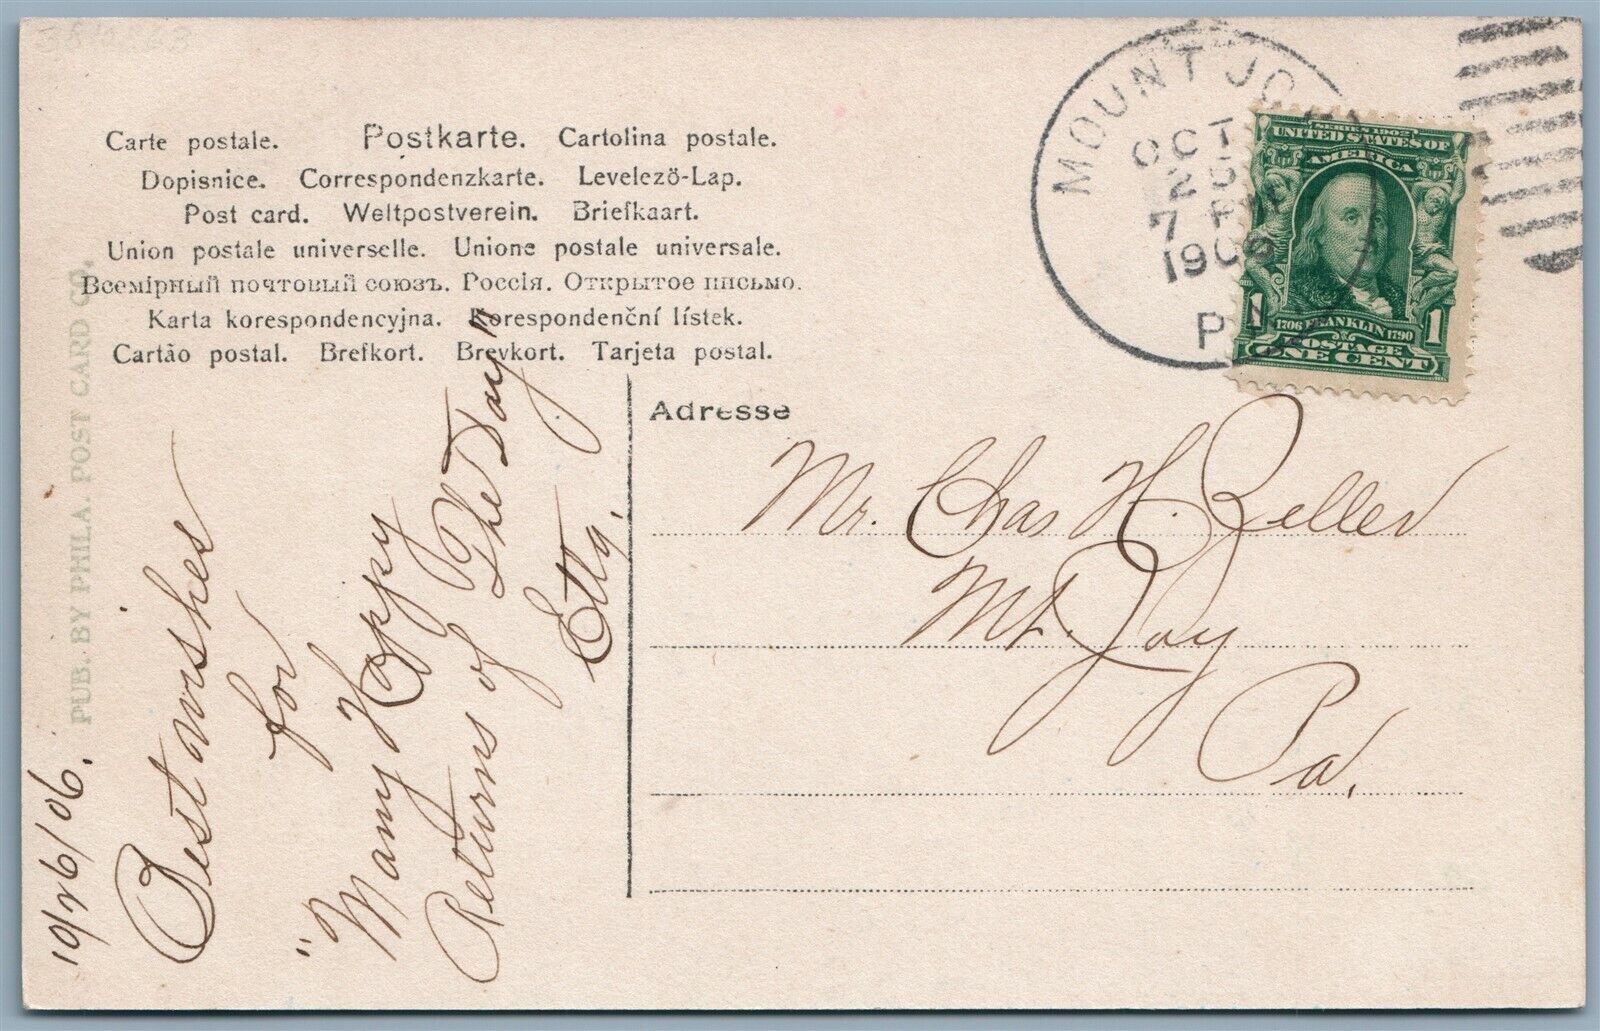 Carte postale. Postkarte. Cartolina postale.
Dopisnice. Correspondenzkarte. Levelező-Lap.
Post card. Weltpostverein. Briefkaart.
Union postale universelle. Unione postale universale.
Всемірный почтовый союзъ. Россія. Открытое письмо.
Karta korespondencyjna. Korespondenční lístek.
Cartão postal. Brefkort. Brevkort. Tarjeta postal.
PUB. BY PHILA. POST CARD CO.
10/26/06.
Best wishes
for
"Many Happy
Returns of The Day"
Etta.
Adresse
Mr. Chas H. Zeller
Mt. Joy
Pa.
MOUNT JOY
OCT
25
7 PM
1906
PA.
SERIES 1902
UNITED STATES OF
AMERICA
1 1
1706 FRANKLIN 1790
POSTAGE
ONE CENT